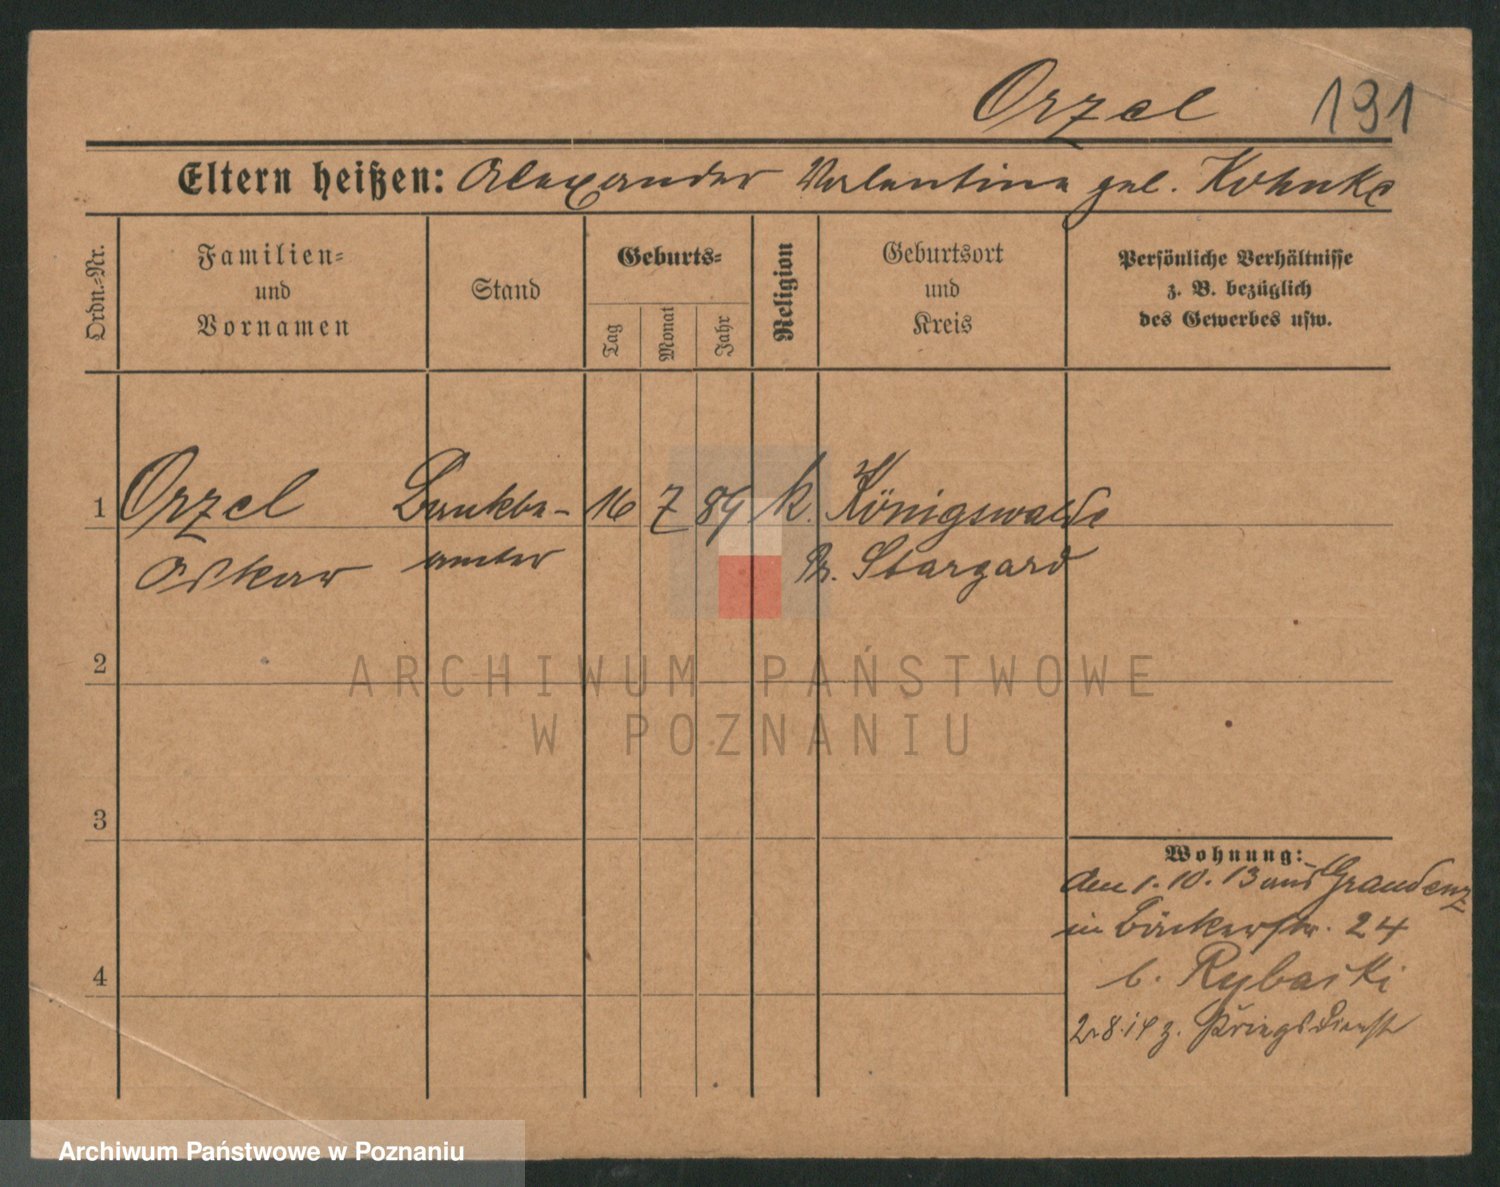 Orzel 191
Eltern heißen: Alexander Valentina geb. Kohnke
Ordn.-Nr.
Familien-
und
Vornamen
Stand
Geburts-
Tag
Monat
Jahr
Religion
Geburtsort
und
Kreis
Persönliche Verhältnisse
z. B. bezüglich
des Gewerbes usw.
1 Orzel Bankbe- 16 7 89 k. Königswalde
Oskar amter Pr. Stargard
2
3
4
Wohnung:
Am 1.10.13 aus Graudenz
in Bäckerstr. 24
b. Rybaski
2.8.14 z. Kriegsdienst
ARCHIWUM PAŃSTWOWE
W POZNANIU
Archiwum Państwowe w Poznaniu